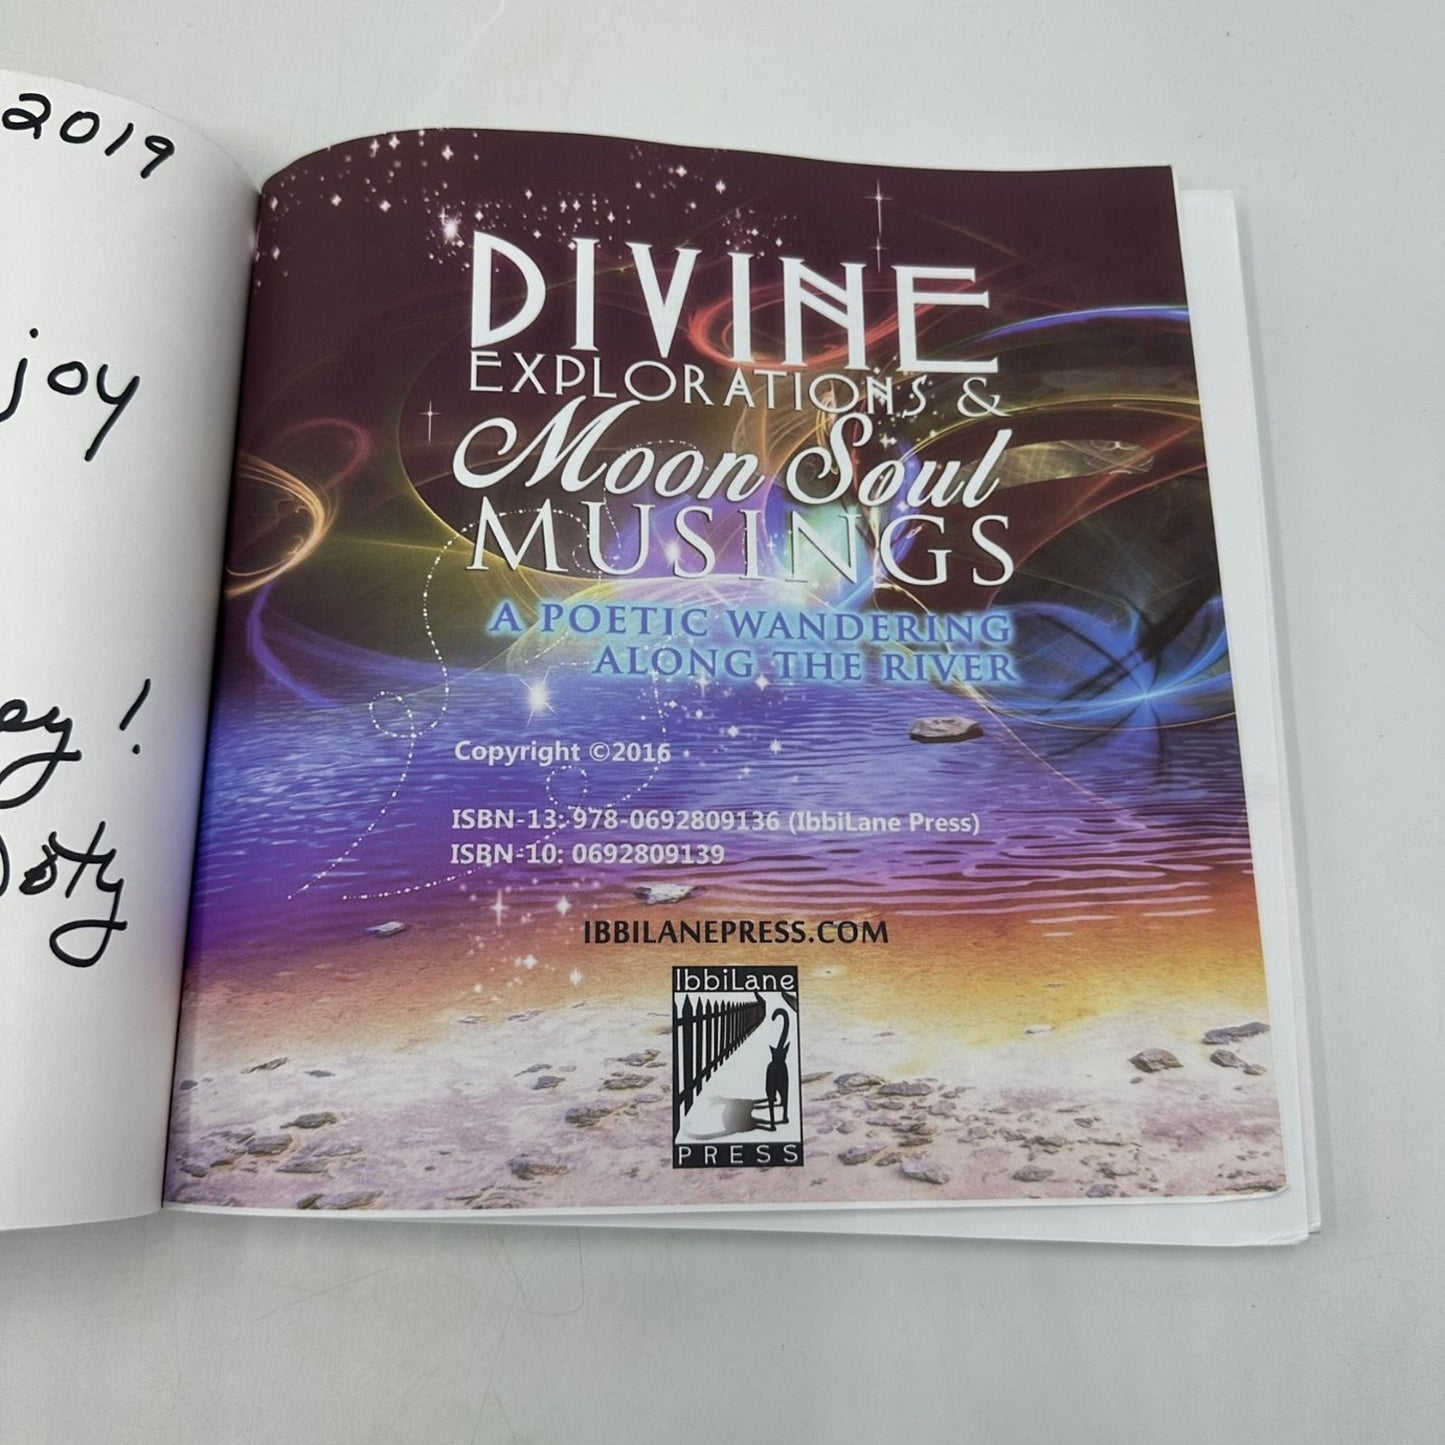 2019
joy
ey!
Doty
DIVINE
EXPLORATIONS &
Moon Soul
MUSINGS
A POETIC WANDERING
ALONG THE RIVER
Copyright ©2016
ISBN-13: 978-0692809136 (IbbiLane Press)
ISBN-10: 0692809139
IBBILANEPRESS.COM
IbbiLane
PRESS